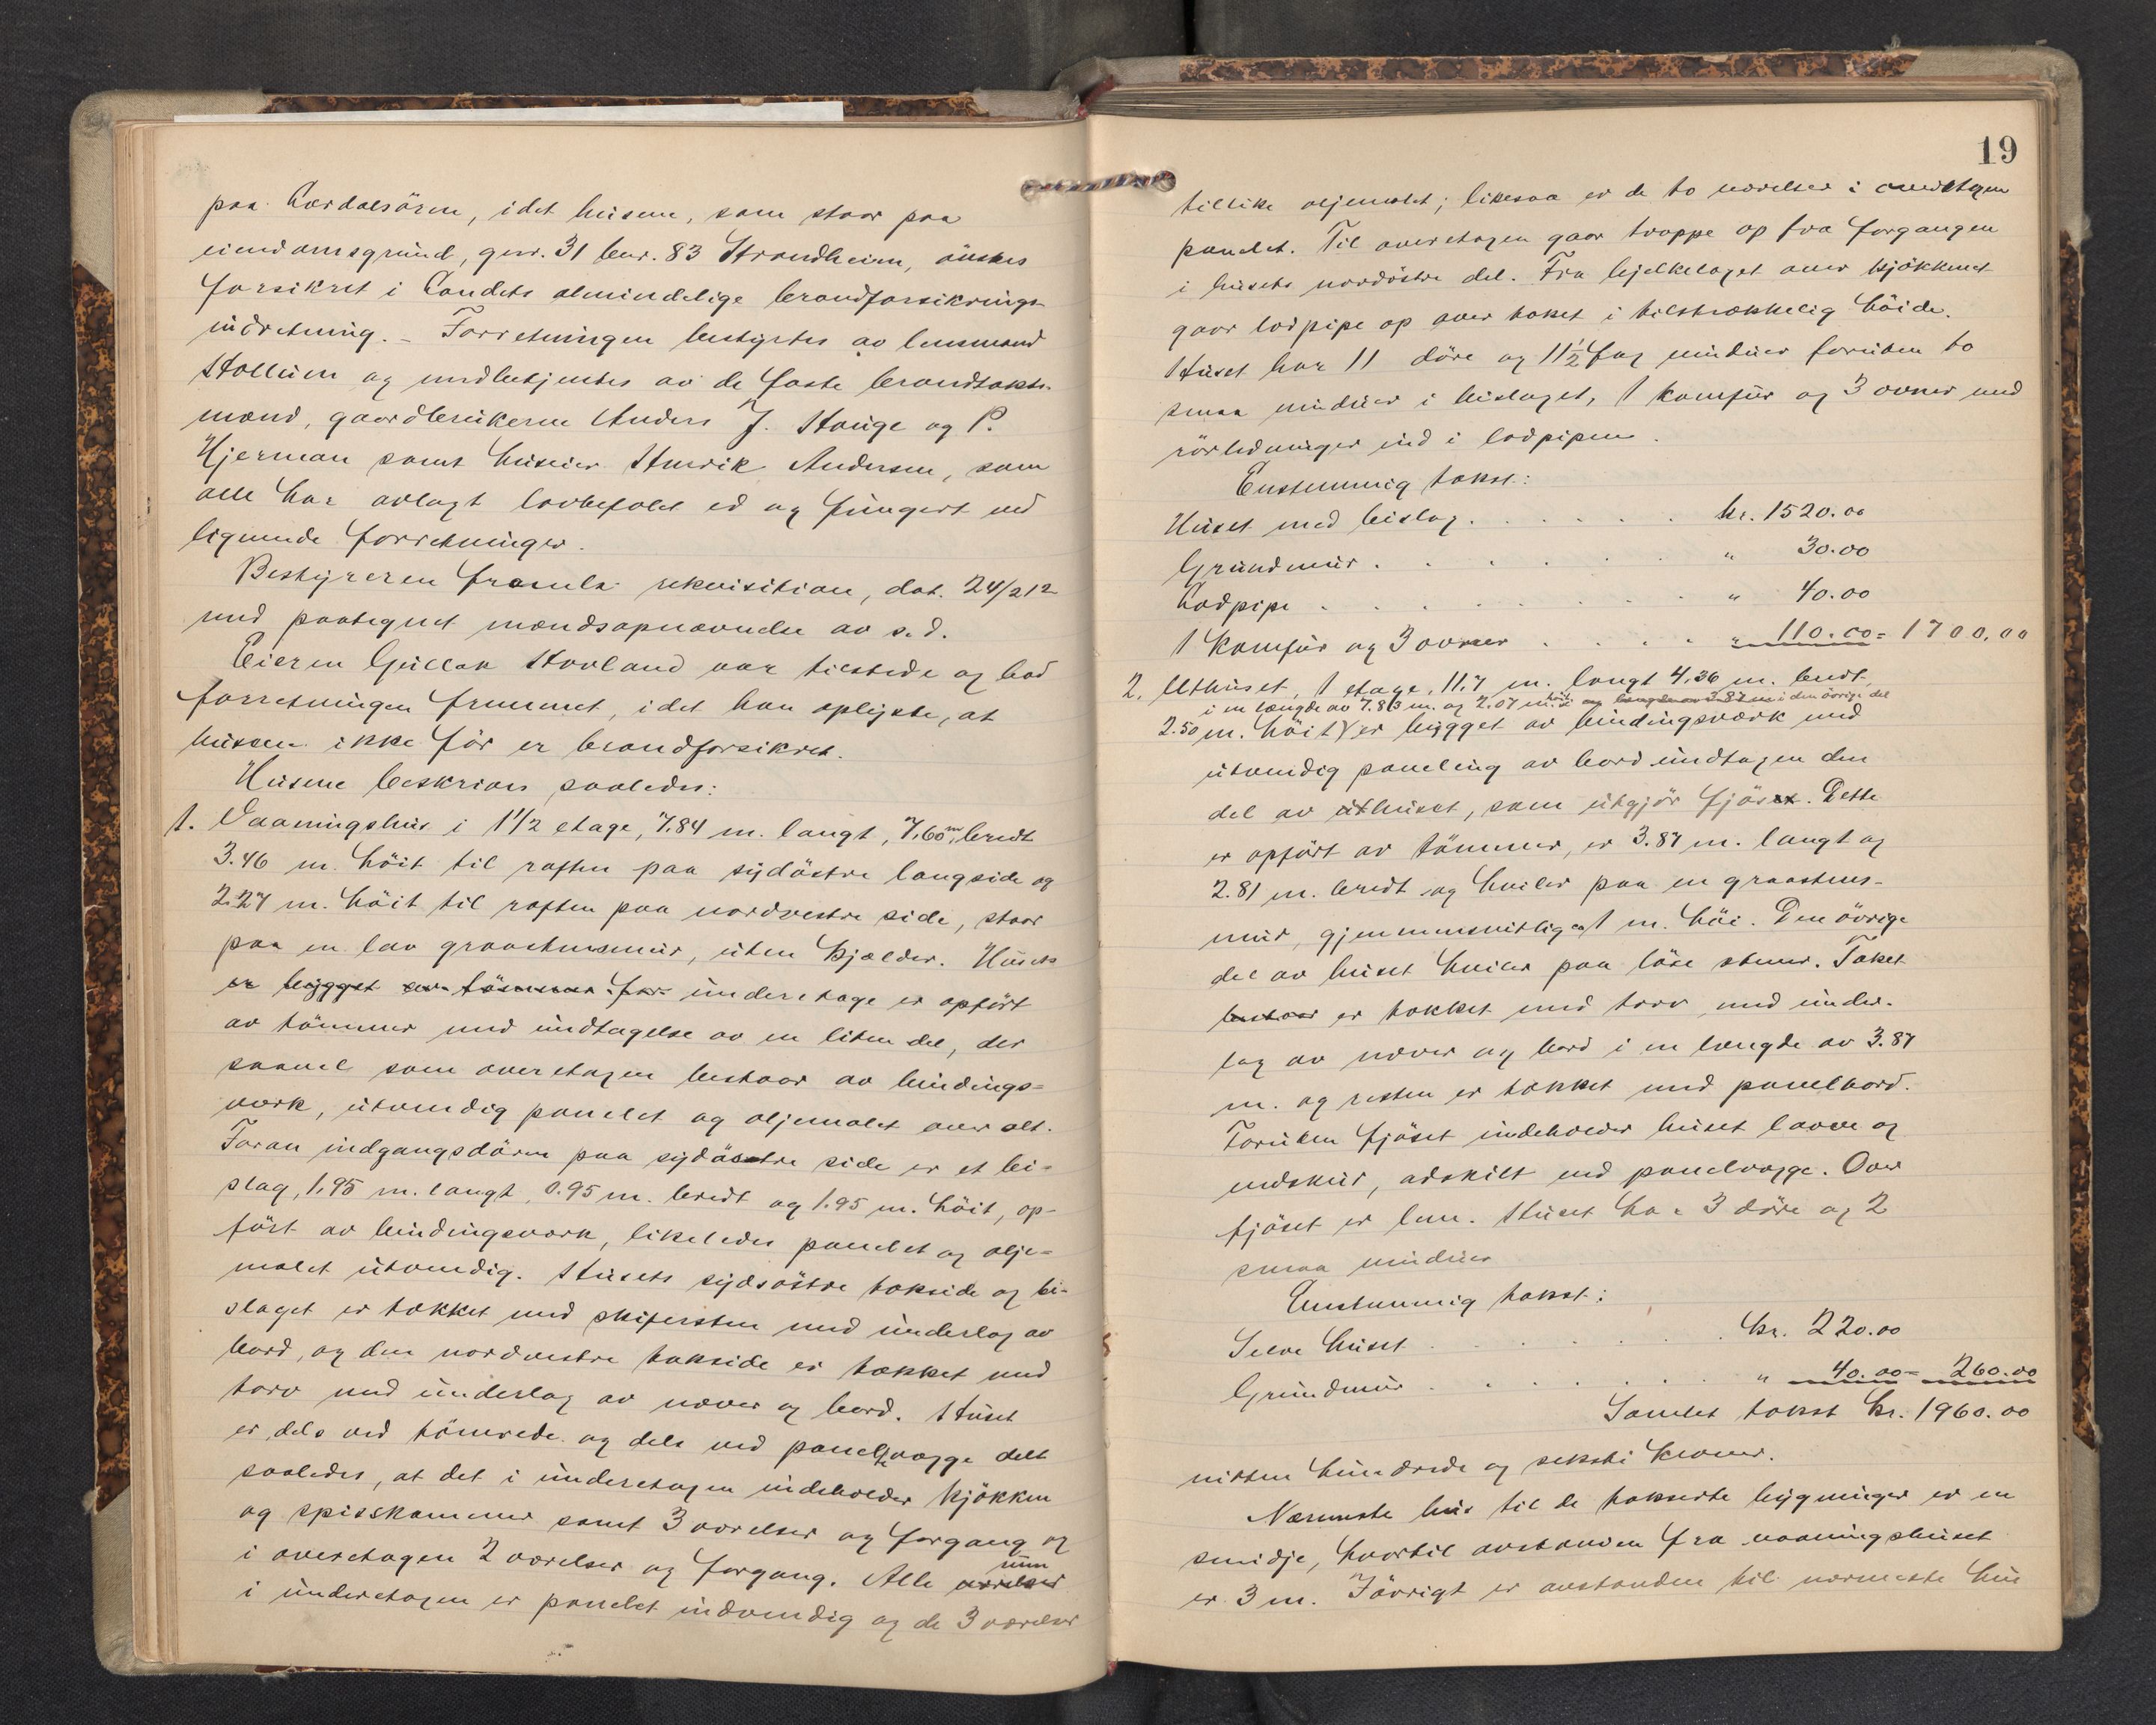 paa Lærdalsören, idet husene, som staar paa
eiendomsgrund, gnr. 31 bnr. 83 Strandheim, önskes
forsikret i Landets almindelige brandforsikrings-
indretning. - Forretningen bestyrtes av lensmand
Stallum og medbetjentes av de faste brandtakts-
mænd, gaardbrukerne Anders J. Hauge og P.
Hjerman samt huseier Henrik Andersen, som
alle har avlagt lovbefalet ed og fungert ved
lignende forretninger.
Bestyreren fremla rekvisition, dat. 24/2 12
med paategnet mændsopnævnelse av s. d.
Eieren Gullak Hovland var tilstede og bad
forretningen fremmet, idet han oplyste, at
husene ikke för er brandforsikret.
Husene beskrives saaledes:
1. Vaaningshus i 1 1/2 etage, 7.84 m. langt, 7.60 m. bredt
3.46 m. höit til raften paa sydöstre langside og
2.27 m. höit til raften paa nordvestre side, staar
paa en lav graastensmur, uten kjælder. Husets
er bygget av tömmer for underetage er opfört
av tömmer med undtagelse av en liten del, der
saavel som overetagen bestaar av bindings-
værk, utvendig panelet og oljemalet over alt.
Foran indgangsdören paa sydöstre side er et bi-
slag, 1.95 m. langt, 0.95 m. bredt og 1.95 m. höit, op-
fört av bindingsværk, likeledes panelet og olje-
malet utvendig. Husets sydöstre takside og bi-
slaget er tækket med skifersten med underlag av
bord, og den nordvestre takside er tækket med
torv med underlag av næver og bord. Huset
er dels ved tömrede og dels ved panelvægge delt
saaledes, at det i underetagen indeholder kjökken
og spisskammer samt 3 værelser og forgang og
i overetagen 2 værelser og forgang. Alle værelser rum
i underetagen er panelet indvendig og de 3 værelser
19
tillike oljemalet; likesaa er de to værelser i overetagen
panelet. Til overetagen gaar trappe op fra forgangen
i husets nordöstre del. Fra bjelkelaget over kjökkenet
gaar lodpipe op over taket i tilstrækkelig höide.
Huset har 11 döre og 11 1/2 fag vinduer foruten to
smaa vinduer i bislaget, 1 komfur og 3 ovner med
rörledninger ind i lodpipen.
Enstemmig takst:
Huset med bislag . . . . . . kr. 1520.00
Grundmur . . . . . . " 30.00
Lodpipe . . . . . . . " 40.00
1 komfur og 3 ovner . . . . " 110.00 = 1700.00
2. Uthuset, 1 etage, 11.7 m. langt 4.36 m. bredt,
i en længde av 7.83 m. og 2.07 m. höit i en længde av 3.87 m i den övrige del
2.50 m. höit er bygget av bindingsværk med
utvendig paneling av bord undtagen den
del av uthuset, som utgjör fjöset. Dette
er opfört av tömmer, er 3.87 m. langt og
2.81 m. bredt og hviler paa en graastens-
mur, gjennemsnitlig 1 m. höi. Den övrige
del av huset hviler paa löse stener. Taket
bestaar er tækket med torv med under-
lag av næver og bord i en længde av 3.87
m. og resten er tækket med panelbord.
Foruten fjöset indeholder huset laave og
vedskur, adskilt ved panelvægge. Over
fjöset er lem. Huset har 3 döre og 2
smaa vinduer
Enstemmig takst:
Selve huset . . . . . . kr. 220.00
Grundmur . . . . . . " 40.00 = 260.00
Samlet takst kr. 1960.00
nitten hundrede og seksti kroner.
Nærmeste hus til de takserte bygninger er en
smidje, hvortil avstanden fra vaaningshuset
er 3 m. Iövrigt er avstanden til nærmeste hus